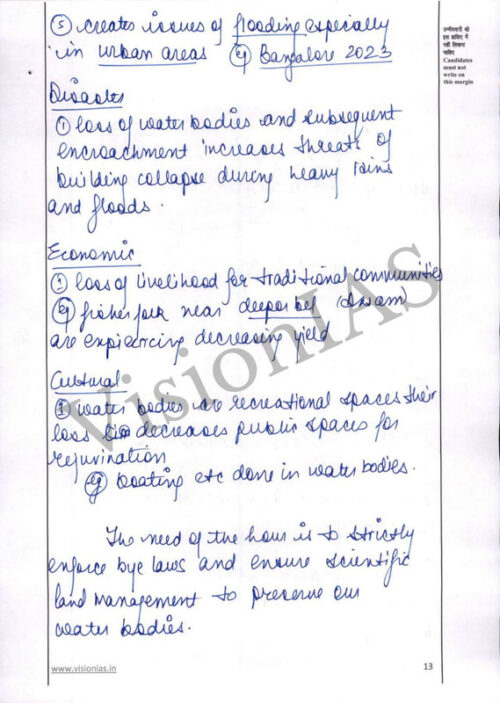 ⑤ creates issues of flooding especially
in urban areas eg Bangalore 2023
Disaster
① loss of water bodies and subsequent
encroachment increases threats of
building collapse during heavy rains
and floods.
Economic
① loss of livelihood for traditional communities
eg fisherfolk near deepor beel (Assam)
are expiercing decreasing yield
Cultural
① water bodies are recreational spaces their
loss decreases public spaces for
rejuvination
eg boating etc done in water bodies.
The need of the hour is to strictly
enforce bye laws and ensure scientific
land management to preserve our
water bodies.
उम्मीदवारों को
इस हाशिए में
नहीं लिखना
चाहिए
Candidates
must not
write on
this margin
VisionIAS
www.visionias.in
13